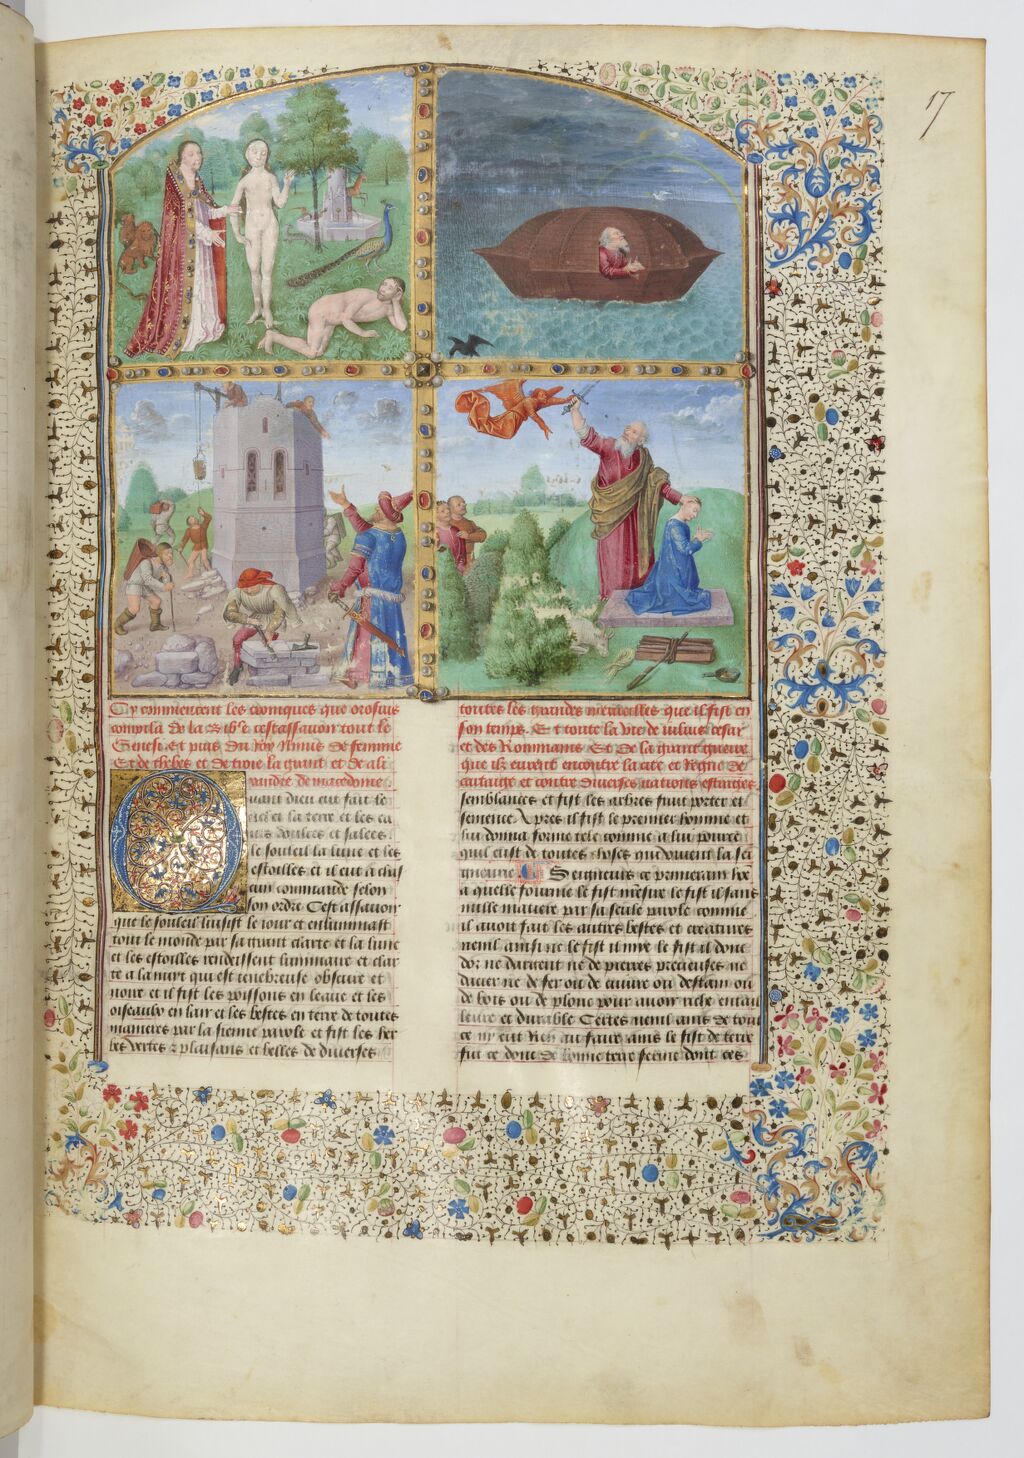 17
Cy commencent les croniques que orosius
compila de la bible cestassauoir tout le
Genesi Et puis du roy Ninus de femenie
Et de thebes et de troie la grant et de ali
xandre de macedoine
Quant dieu eut fait le
ciel et la terre et les ea
ues doulces et salees
le souleil la lune et les
estoilles et il eut a chas
cun commande selon
son ordre Cest assauoir
que le souleil luisist le iour et enluminast
tout le monde par sa grant clarte et la lune
et les estoilles rendeissent luminaire et clar
te a la nuit qui est tenebreuse obscure et
noire et il fist les poissons en leaue et les
oiseaulx en lair et les bestes en terre de toutes
manieres par la sienne parole et fist les her
bes vertes et plaisans et belles de diuerses
toutes les grandes merueilles que il fist en
son temps Et toute la vie de iulius cesar
et des Rommains Et de la grant guerre
que ilz eurent encontre la cite et regne de
cartaige et contre diuerses nations estranges
semblances et fist les arbres fruit porter et
semence Apres il fist le premier homme et
lui donna forme tele comme a lui pource
quil eust de toutes choses qui viuent la sei
gneurie Seigneurs ce primerain
a quelle fourme le fist mesire le fist il sans
nulle matiere par sa seule parole comme
il auoit fait les autres bestes et creatures
nenil ainsi ne le fist il mye le fist il donc
dor ne dargent ne de pierres precieuses ne
dacier ne de fer ou de cuiure ou destain ou
de bois ou de plonc pour auoir riche entail
leure et durable Certes nenil ains de tout
ce ny eut rien au faire ains le fist de terre
fut ce donc de bonne terre ferme dont ces